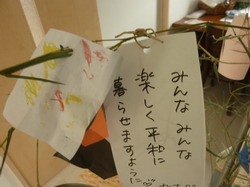 みんな みんな
楽しく 平和に
暮らせますように♡